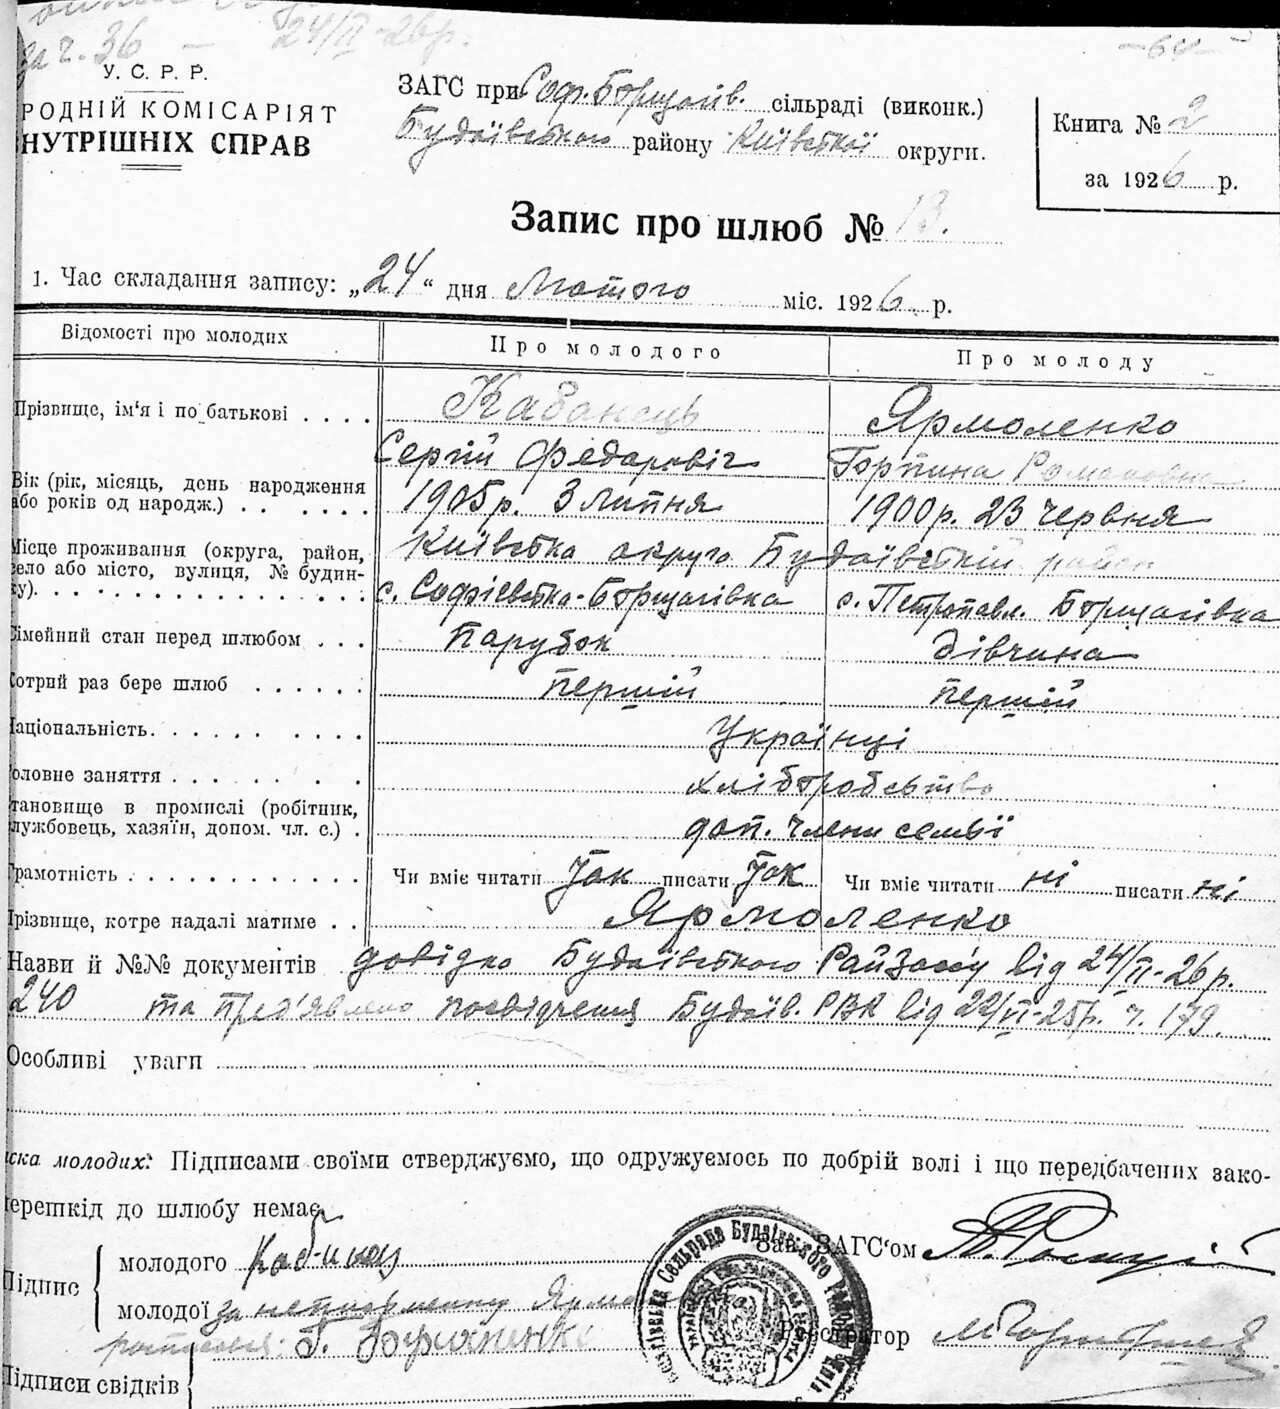 за ч. 36 — 24/II-26р.
— 64 —
У. С. Р. Р.
РОДНІЙ КОМІСАРІЯТ
НУТРІШНІХ СПРАВ
ЗАГС при Соф. Борщагів. сільраді (виконк.)
Будаївського району Київської округи.
Книга № 2
за 1926 р.
Запис про шлюб № 13.
1. Час складання запису: „24“ дня Лютого міс. 1926 р.
Відомості про молодих
Про молодого
Про молоду
Прізвище, ім'я і по батькові
Кабанець
Ярмоленко
Сергій Федаровіч
Горпина Романовна
Вік (рік, місяць, день народження
або років од народж.)
1905р. 3 Липня
1900р. 23 червня
Місце проживання (округа, район,
село або місто, вулиця, № будин-
ку)
Київська округа Будаївській район
с. Софієвська-Борщагівка
с. Петропавл. Борщагівка
імейний стан перед шлюбом
Парубок
дівчина
отрий раз бере шлюб
першій
першій
аціональність
Українці
оловне заняття
хліборобство
тановище в промислі (робітник,
лужбовець, хазяїн, допом. чл. с.)
доп. члени семьї
рамотність
Чи вміє читати так писати так
Чи вміє читати ні писати ні
різвище, котре надалі матиме
Ярмоленко
Назви й №№ документів довідка Будаївського РайЗагсу від 24/II-26р.
240 та пред'явлено посвідчення Будаїв. РВК від 22/VI-25р. ч. 179.
Особливі уваги
ска молодих: Підписами своїми стверджуємо, що одружуємось по добрій волі і що передбачених зако-
перешкід до шлюбу немає
Підпис
молодого
молодої за неписьменну
Г.
Зав. ЗАГС'ом
Реєстратор
Підписи свідків
Сельрада Будаївського Району